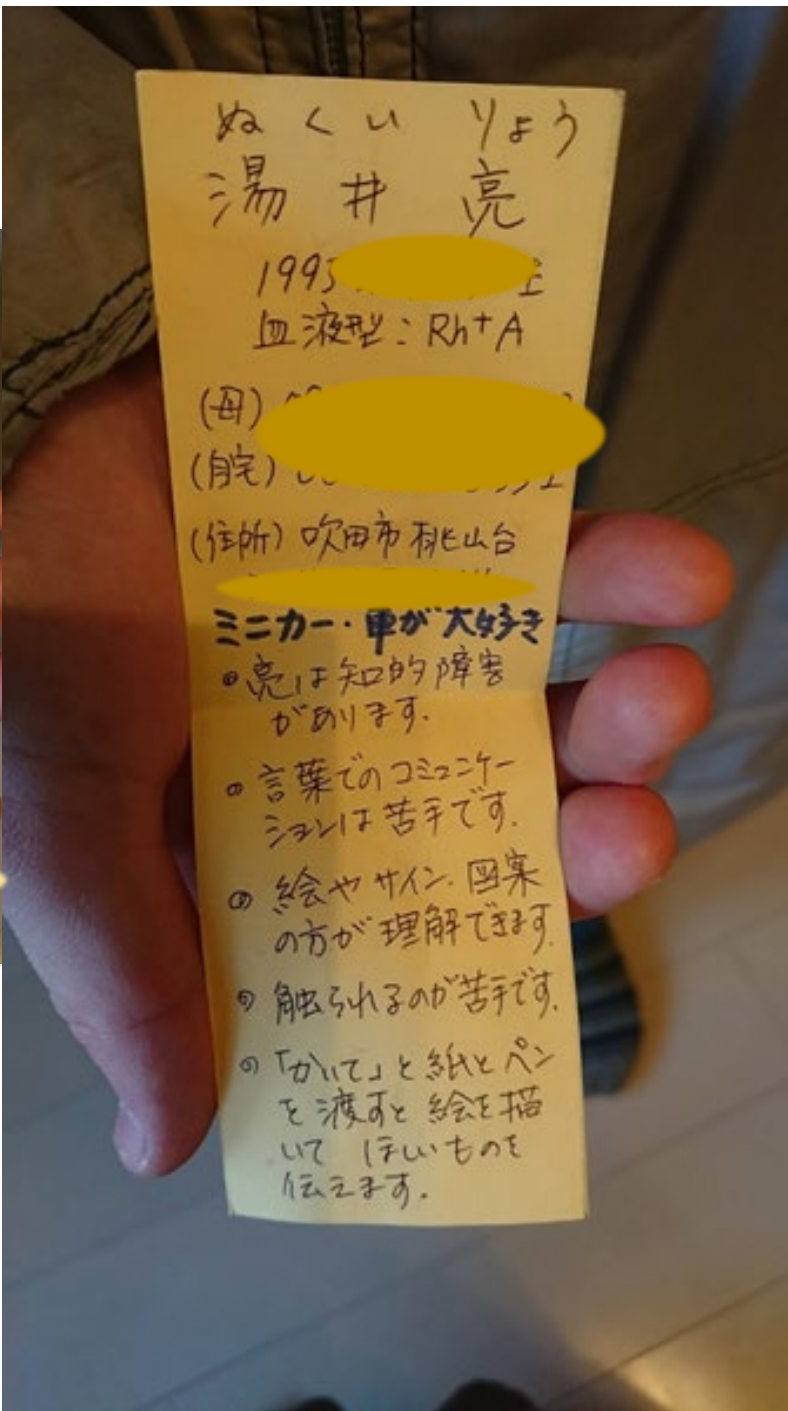 ぬくい りょう
湯井 亮
1993
血液型：Rh+A
(母)
(自宅)
(住所) 吹田市 桃山台
ミニカー・車が大好き
亮は知的障害
があります.
言葉でのコミュニケー
ションは苦手です.
絵やサイン.図案
の方が理解できます.
触られるのが苦手です.
「かいて」と紙とペン
を渡すと絵を描
いて ほしいものを
伝えます.